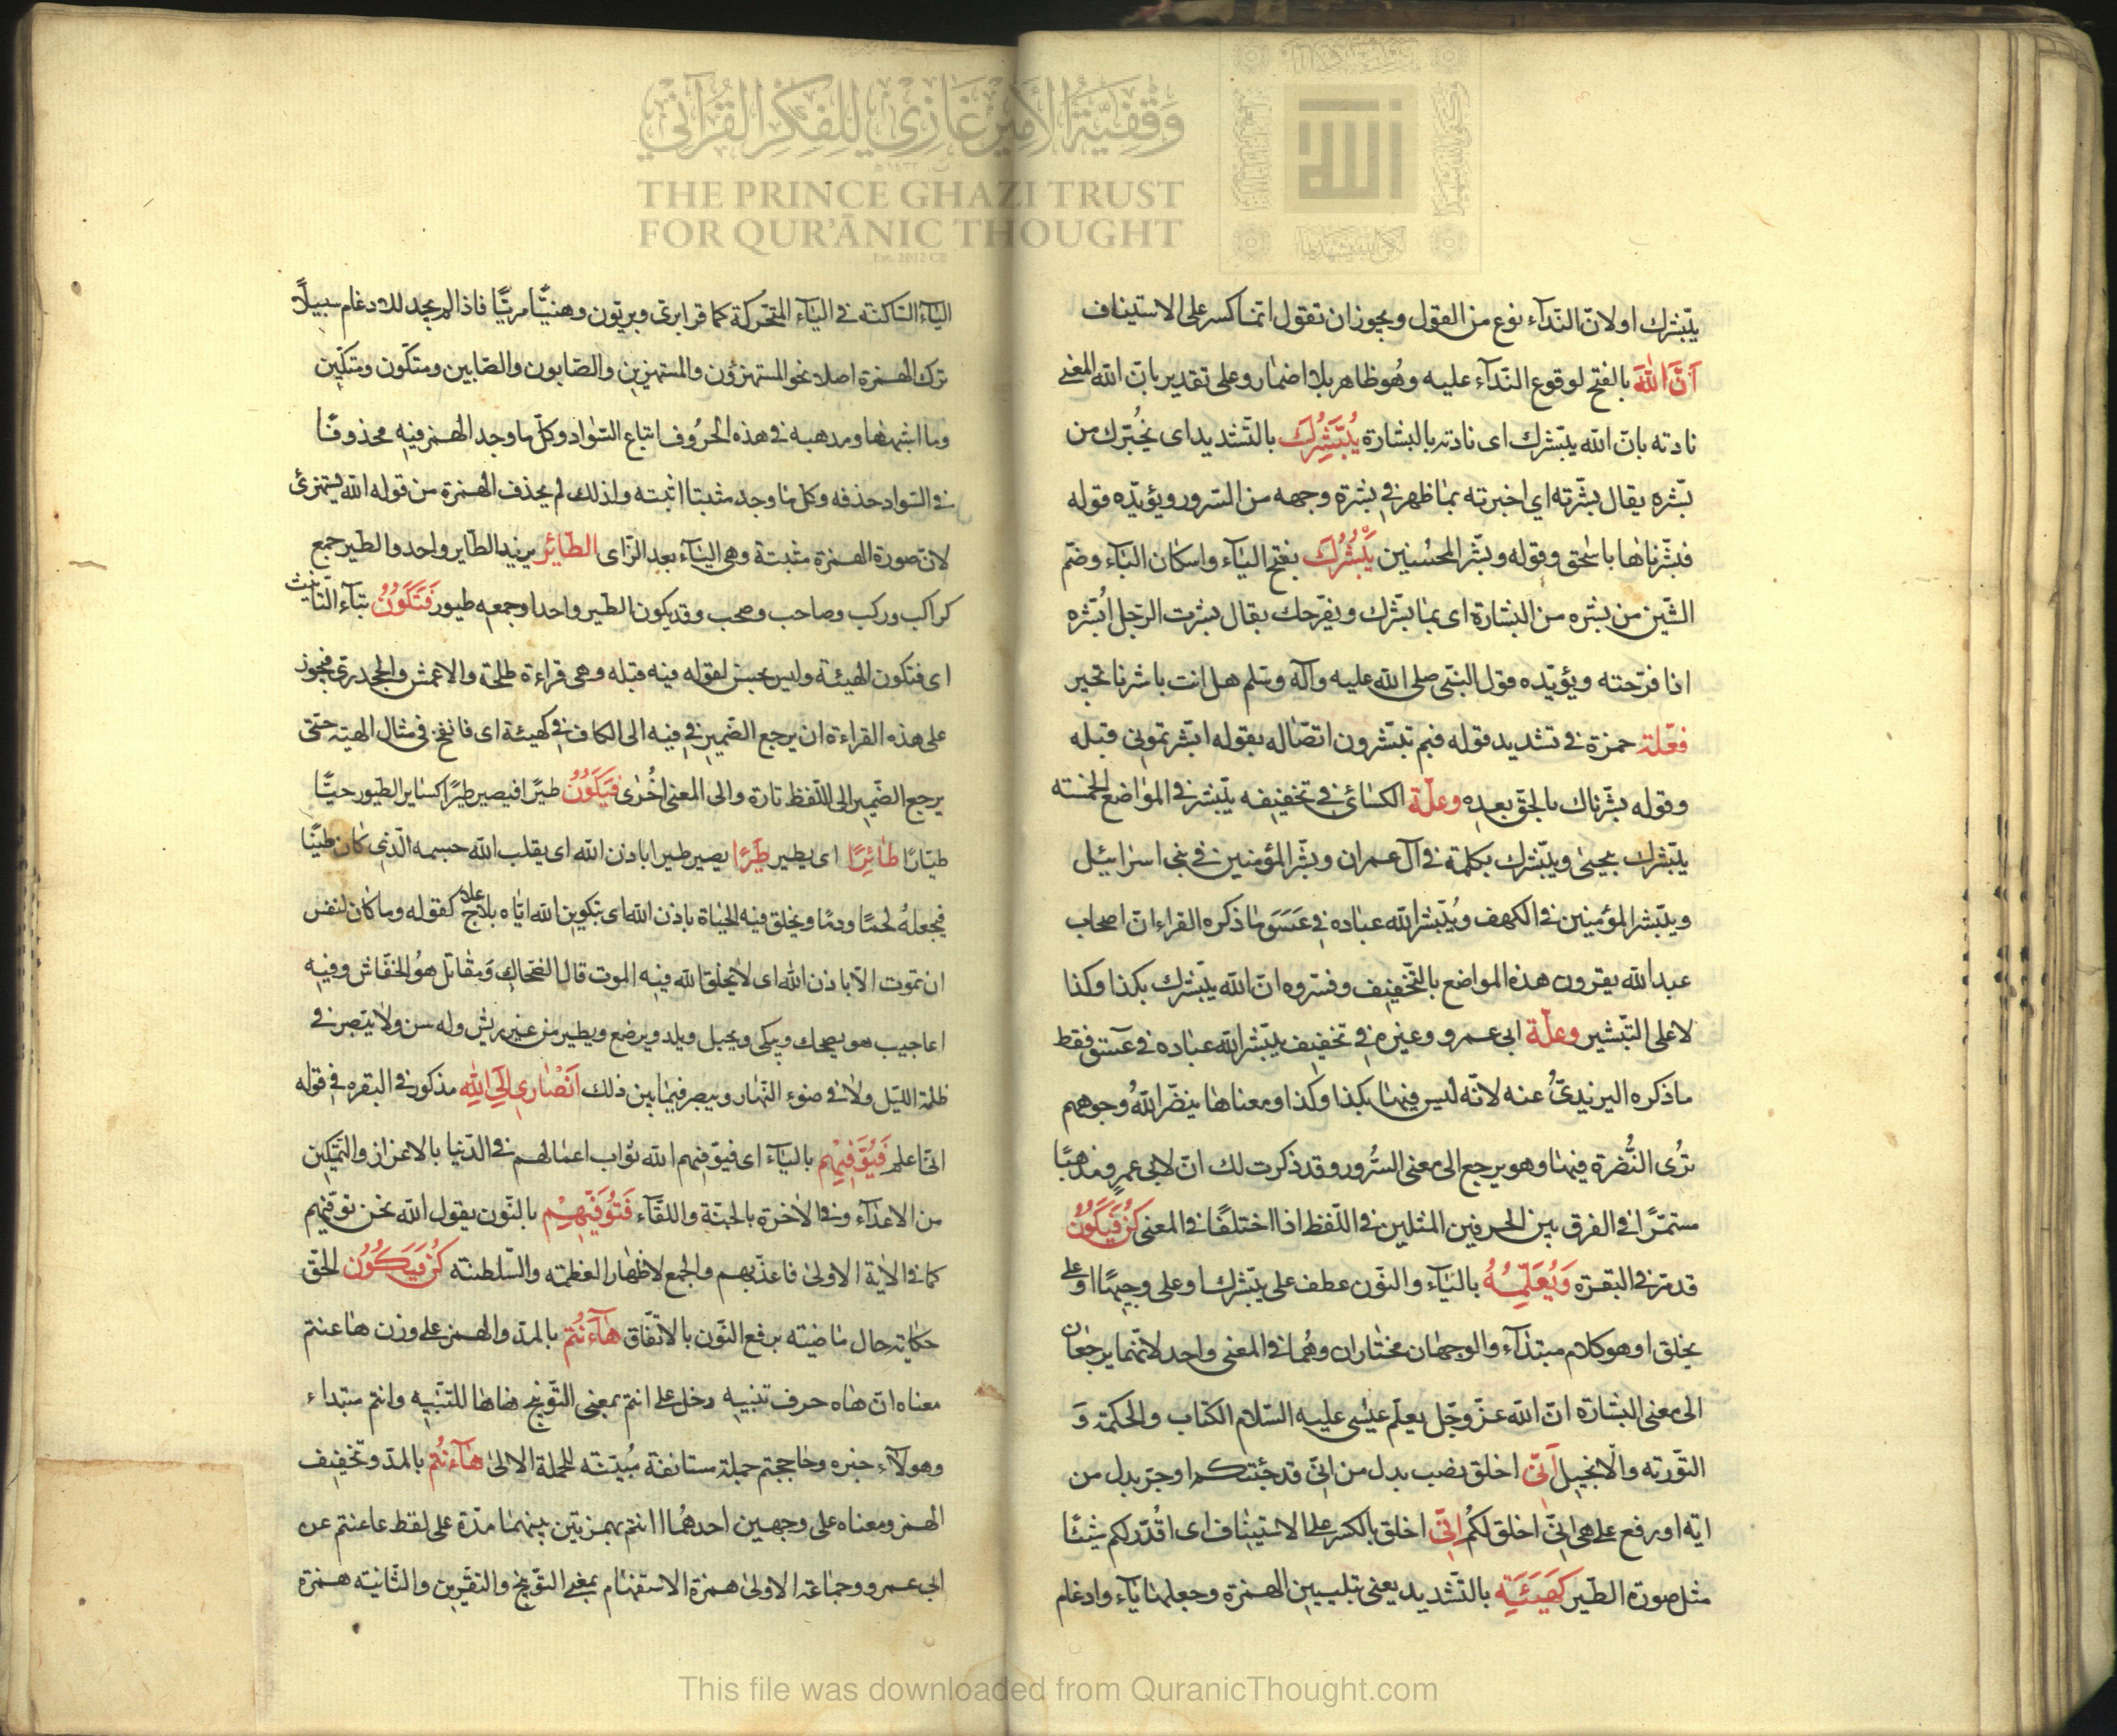 وَقْفِيَّةُ الأَمِيْرِ غَازِي لِلْفِكْرِ القُرْآنِيِّ
THE PRINCE GHAZI TRUST
FOR QUR'ĀNIC THOUGHT
Est. 2012 CE
الله
يبّشرك او لانّ النّدآء نوع من القول ويجوز ان تقول انمّا كسر على الاستيناف
اَنَّ اللّٰهَ بالفتح لوقوع النّدآء عليه وهُو ظاهر بلا اضمار وعلى تقدير بانّ الله المعنى
نادته بانّ الله يبّشرك اى نادته بالبشارة يُبَشِّرُكَ بالتّشديد اى يُخبّرك من
بشّره يقال بشّرته اي اخبرته بما ظهر في بشرة وجهه من السّرور ويؤيّده قوله
فبشّرناها باسحٰق وقوله وبشّر المحسنين يَبْشُرُكَ بفتح اليآء واسكان البآء وضمّ
الشّين من بشره من البشارة اى بما يبشّرك ويفرّحك يقال بشرت الرّجل اُبشره
اذا فرّحته ويؤيّده قول النّبى صلى الله عليه وآله وسلم هل انت باشرنا بخير
فعّلة حمزة في تشديد قوله فبم تبّشرون اتصّاله بقوله ابّشرتمونى قبله
وقوله بشّرناك بالحقّ بعده وعلّة الكسائي في تخفيفه يبّشر في المواضع الخمسته
يبّشرك بيحيىٰ ويبّشرك بكلمة في آل عمران ويبّشر المؤمنين في بنى اسرائيل
ويبّشر المؤمنين في الكهف ويُبّشر الله عباده في عسق ما ذكره القراء انّ اصحاب
عبد الله يقرون هذه المواضع بالتّخفيف وفسّروه انّ الله يبّشرك بكذا وكذا
لا على التّبشير وعلّة ابى عمرو وغيره في تخفيف يبّشر الله عباده في عسق فقط
ما ذكره اليزيدىّ عنه لانّه ليس فيها بكذا وكذا ومعناها ينضّر اللهُ وجوههم
تُرى النُّضرة فيها وهو يرجع الى معنى السُّرور وقد ذكرت لك انّ لابى عمرٍو مذهبًا
مستمرًّا في الفرق بين الحرفين المثلين في اللّفظ اذا اختلفًا في المعنى كُنْ فَيَكُونُ
قد مرّ في البقرة وَيُعَلِّمُهُ باليآء والنّون عطف على يبّشرك او على وجيهًا او على
يخلق او هو كلام مبتدآء والوجهان مختاران وهُما في المعنى واحد لانّهما يرجعان
الى معنى البشارة انّ الله عزّ وجّل يعلّم عيسٰى عليه السّلام الكتاب والحكمة وَ
التّورته والانجيل اَنّى اخلق نصب بدل من انّى قد جئتكم او جرّ بدل من
ايّة او رفع على هى انّى اخلق لكُم اِنّى اخلق بالكسر على الاستيناف اى اقُدّر لكم شيئًا
مثل صورة الطّير كَهَيْئَةِ بالتّشديد يعنى بتليين الهمزة وجعلها يآء وادغام
اليآء السّاكنة في اليآء المتحّركة كما قرا برىّ وبريّون وهنيّئًا مريّئًا فاذا لم يجد للادغام سبيلًا
ترك الهمزة اصلا نحو المستهزؤن والمستهزين والصّابون والصّابين ومتكّون ومتكّين
وما اشبهها ومذهبه في هذه الحُروف اتباع السّواد وكلّ ما وجد الهمز فيه محذوفًا
في السّواد حذفه وكل ما وجد مثبتا اثبته ولذلك لم يحذف الهمزة من قوله الله يستهزئ
لانّ صورة الهمزة مثبتة وهى اليآء بعد الزّاى الطّائر يريد الطّاير واحد والطّير جمع
كراكب وركب وصاحب وصحب وقد يكون الطّير واحدا وجمعه طيور فَتَكُونُ بتآء التّانيث
اى فتكون الهيئة وليس بحسن لقوله فيه قبله وهى قراءة طلحة والاعمش والجحدرىّ فيجوز
على هذه القراءة ان يرجع الضّمير في فيه الى الكاف في كهيئة اى فانفخ في مثال الهيّة حتّى
يرجع الضّمير الى اللّفظ تارة والى المعنى اُخرٰى فَيَكُونُ طيرًا فيصير طيرًا كساير الطّيور حيًّا
طيّارًا طَائِرًا اى يطير طَيْرًا يصير طيرا باذن الله اى يقلب الله جسمه الّذى كان طيّنًا
فيجعلهُ لحمًا ودمًا ويخلق فيه الحيٰاة باذن الله اى بتكوين الله ايّاه بلا علاج كقوله وما كان لنفس
ان تموت الّا باذن الله اى لا يخلق الله فيه الموت قال الضحّاك ومقاتل هُو الخفّاش وفيه
اعاجيب هو يضحك ويبكى ويحبل ويلد ويرضع ويطير من غير ريش وله سن ولا يبصر في
ظلمة اللّيل ولا في ضوء النّهار ويبصر فيما بين ذلك اَنْصَارِى اِلَى اللّٰهِ مذكور في البقره في قوله
انّى اعلم فَيُوَفِّيْهِم باليآء اى فيوّفيهم الله ثواب اعمالهم في الدّنيا بالاعزاز والتّمكين
من الاعدآء وفي الاخرة بالجنّة واللقآء فَنُوَفِّيْهِم بالنّون يقول الله نحن نوّفيهم
كما في الاية الاولىٰ فاعذّبهم والجمع لاظهار العظمته والسّلطنته كُنْ فَيَكُونُ الحقّ
حكاية حال ماضيته برفع النّون بالاتّفاق هٰآءَنْتُمْ بالمدّ والهمز على وزن هاعنتم
معناه انّ هاه حرف تنبيه دخل على انتم بمعنى التّوبيخ فاها للتّنبيه وانتم مبتداء
وهولآء خبره وحاججتم جملة مستانفة مُبيّنته للجملة الاولىٰ هٰآءَنْتُمْ بالمدّ وتخفيف
الهمز ومعناه على وجهين احدهُما اانتم بهمزتين بينهما مدّة على لفظ عاعنتم عن
ابى عمرو وجماعة الاولىٰ همزة الاستفهام بمعنى التّوبيخ والتقرين والثّانيته همزة
This file was downloaded from QuranicThought.com